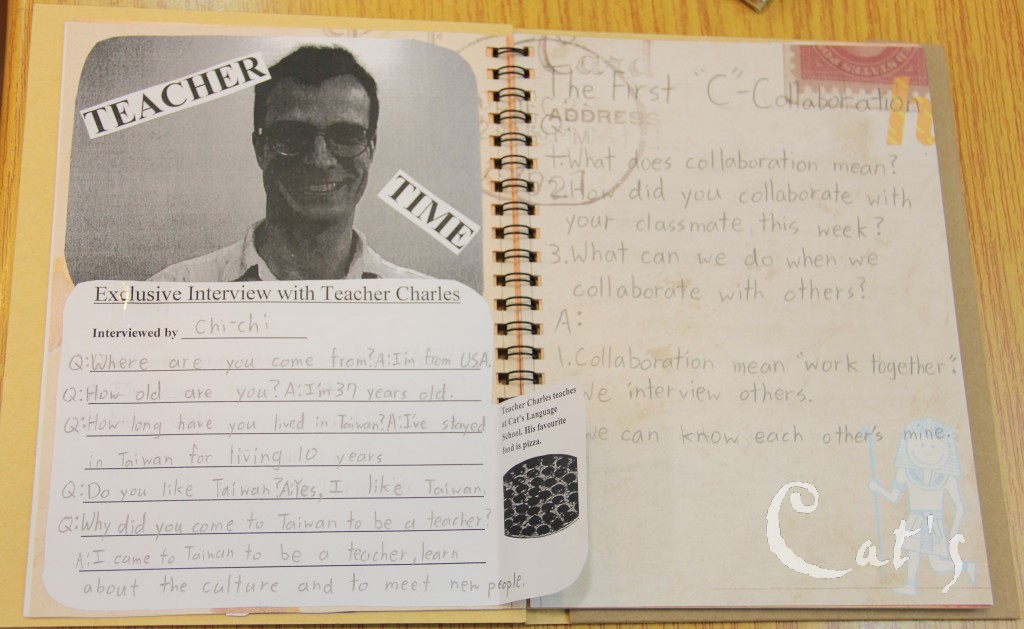 TEACHER
TIME
Exclusive Interview with Teacher Charles
Interviewed by Chi-chi
Q:Where are you come from?A:I'm from USA.
Q:How old are you?A:I'm 37 years old.
Q:How long have you lived in Taiwan?A:I've stayed
in Taiwan for living 10 years
Q:Do you like Taiwan?A:Yes, I like Taiwan.
Q:Why did you come to Taiwan to be a teacher?
A:I came to Taiwan to be a teacher, learn
about the culture and to meet new people.
Teacher Charles teaches
at Cat's Language
School. His favourite
food is pizza.
Card
The First "C"-Collaboration
ADDRESS
Q:
1.What does collaboration mean?
2.How did you collaborate with
your classmate this week?
3.What can we do when we
collaborate with others?
A:
1.Collaboration mean "work together".
We interview others.
we can know each other's mine.
Cat's